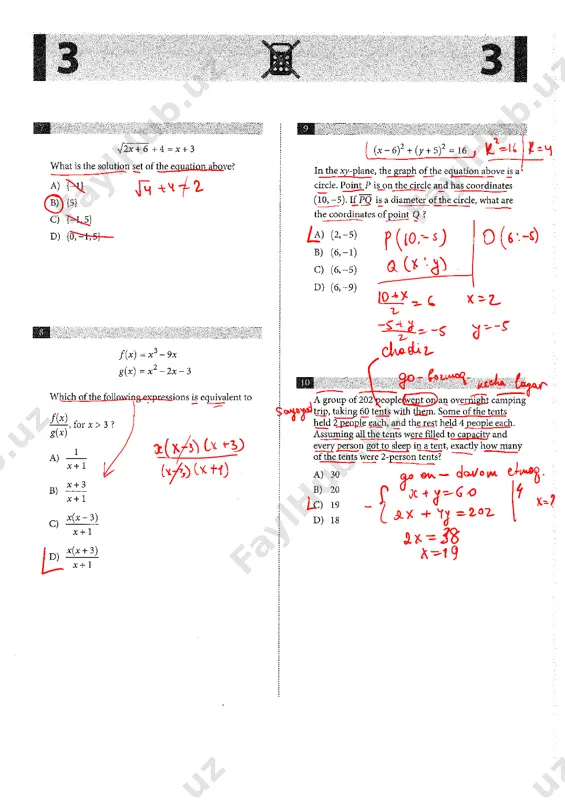 3
3
7
√2x+6 + 4 = x + 3
What is the solution set of the equation above?
A) {-1}
B) {5}
C) {-1, 5}
D) {0, -1, 5}
√4 + 4 ≠ 2
8
f(x) = x³ − 9x
g(x) = x² − 2x − 3
Which of the following expressions is equivalent to
f(x)/g(x), for x > 3 ?
A) 1/(x + 1)
B) (x + 3)/(x + 1)
C) x(x − 3)/(x + 1)
D) x(x + 3)/(x + 1)
x(x−3)(x+3)
(x−3)(x+1)
9
(x − 6)² + (y + 5)² = 16
R² = 16
R = 4
In the xy-plane, the graph of the equation above is a
circle. Point P is on the circle and has coordinates
(10, −5). If PQ is a diameter of the circle, what are
the coordinates of point Q ?
A) (2, −5)
B) (6, −1)
C) (6, −5)
D) (6, −9)
P(10;−5)
O(6;−5)
Q(x;y)
10+x/2 = 6
x=2
−5+y/2 = −5
y=−5
chodiz
go-bormoq
necha lagar
10
A group of 202 people went on an overnight camping
trip, taking 60 tents with them. Some of the tents
held 2 people each, and the rest held 4 people each.
Assuming all the tents were filled to capacity and
every person got to sleep in a tent, exactly how many
of the tents were 2-person tents?
A) 30
B) 20
C) 19
D) 18
go on - davom etmoq.
x+y=60 | 4
x=?
2x+4y=202
2x=38
x=19
FaylHub.uz
FaylHub.uz